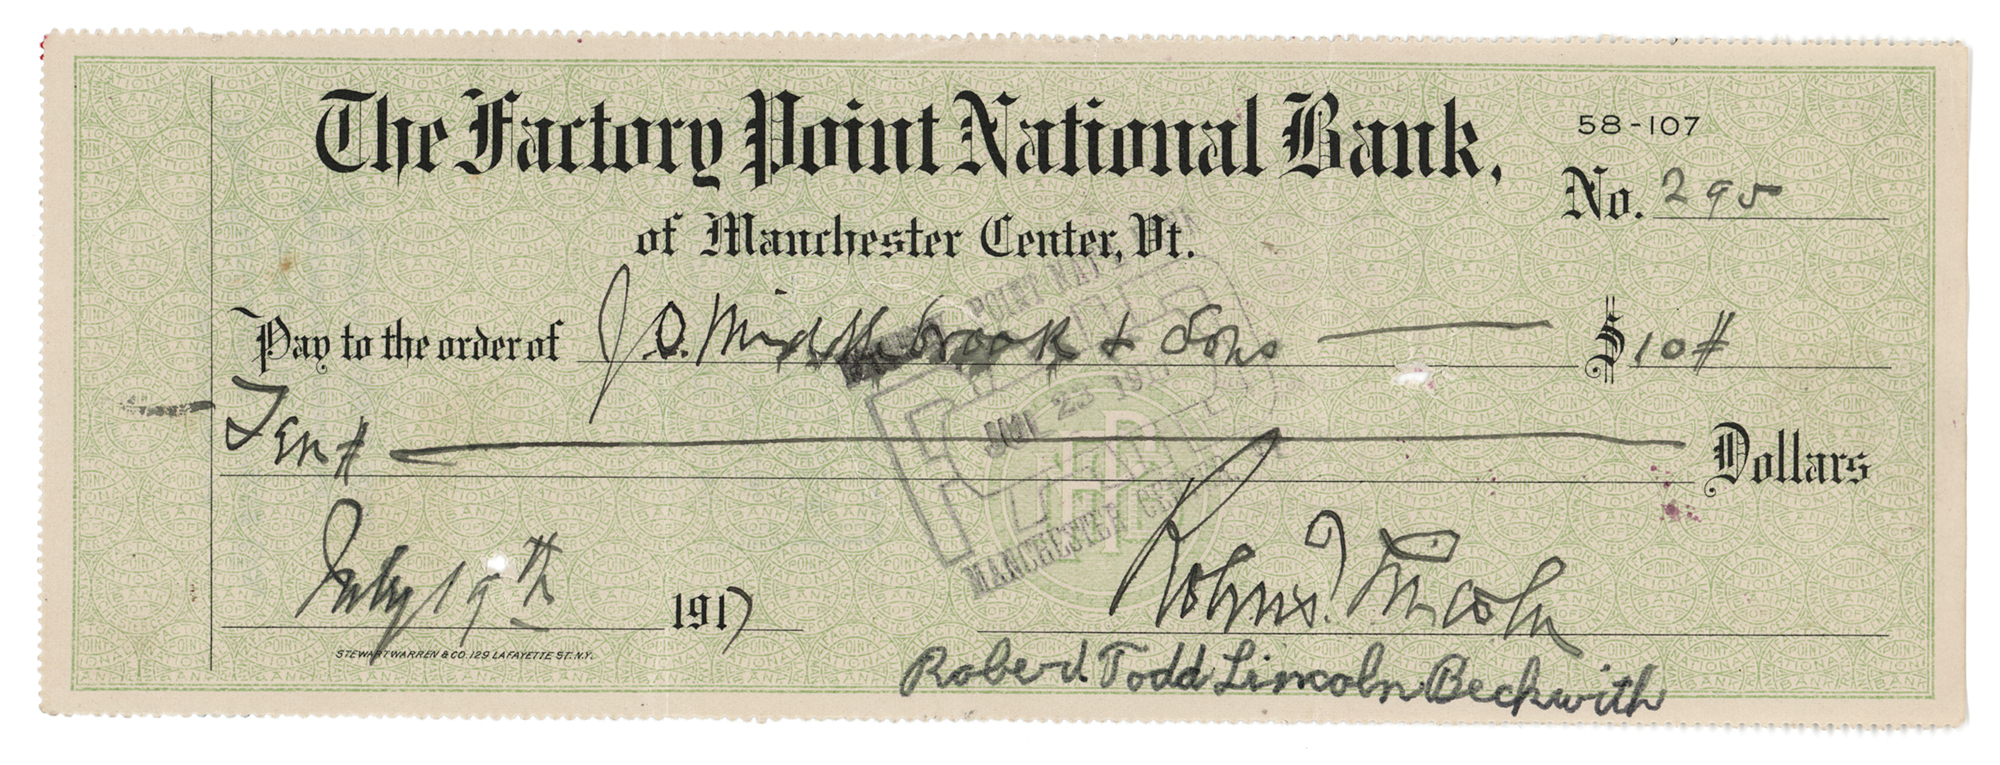 The Factory Point National Bank,
58-107
No. 295
of Manchester Center, Vt.
Pay to the order of J. O. Middlebrook & Sons $10#
Ten # Dollars
POINT NAT'L BANK
PAID
23 1917
MANCHESTER CENTER
July 19th 1917
Robert T. Lincoln
STEWART WARREN & CO. 129 LAFAYETTE ST. N.Y.
Robert Todd Lincoln Beckwith